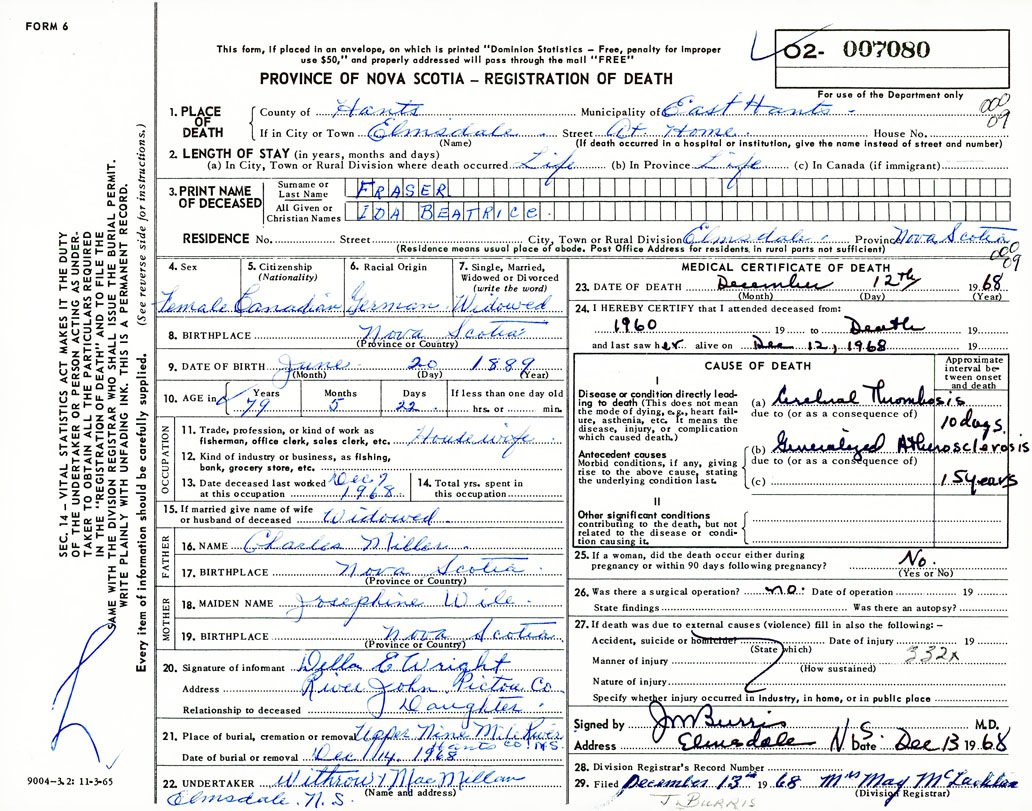 FORM 6
This form, if placed in an envelope, on which is printed "Dominion Statistics – Free, penalty for improper
use $50," and properly addressed will pass through the mail "FREE"
O2- 007080
PROVINCE OF NOVA SCOTIA – REGISTRATION OF DEATH
For use of the Department only
000
09
1. PLACE OF DEATH
County of Hants Municipality of East Hants
If in City or Town Elmsdale Street At Home House No.
(Name) (If death occurred in a hospital or institution, give the name instead of street and number)
2. LENGTH OF STAY (in years, months and days)
(a) In City, Town or Rural Division where death occurred Life (b) In Province Life (c) In Canada (if immigrant)
3. PRINT NAME OF DECEASED
Surname or Last Name FRASER
All Given or Christian Names IDA BEATRICE.
RESIDENCE No. Street City, Town or Rural Division Elmsdale Province Nova Scotia
(Residence means usual place of abode. Post Office Address for residents in rural parts not sufficient)
000
09
4. Sex 5. Citizenship (Nationality) 6. Racial Origin 7. Single, Married, Widowed or Divorced (write the word)
Female Canadian German Widowed
8. BIRTHPLACE Nova Scotia
(Province or Country)
9. DATE OF BIRTH June 20 1889
(Month) (Day) (Year)
10. AGE in Years Months Days If less than one day old
79 5 22 hrs. or min.
OCCUPATION
11. Trade, profession or kind of work as
fisherman, office clerk, sales clerk, etc. Housewife
12. Kind of industry or business, as fishing,
bank, grocery store, etc.
13. Date deceased last worked at this occupation Dec 7 1968
14. Total yrs. spent in this occupation
15. If married give name of wife
or husband of deceased Widowed
FATHER
16. NAME Charles Miller
17. BIRTHPLACE Nova Scotia
(Province or Country)
MOTHER
18. MAIDEN NAME Josephine Wile
19. BIRTHPLACE Nova Scotia
(Province or Country)
20. Signature of informant Della E Wright
Address River John Pictou Co
Relationship to deceased Daughter
21. Place of burial, cremation or removal Upper Nine Mile River
Hants Co. N.S.
Date of burial or removal Dec 14, 1968
22. UNDERTAKER Withrow & MacMillan
(Name and address)
Elmsdale, N.S.
MEDICAL CERTIFICATE OF DEATH
23. DATE OF DEATH December 12th 1968
(Month) (Day) (Year)
24. I HEREBY CERTIFY that I attended deceased from:
1960 19 to Death 19
and last saw her alive on Dec 12, 1968 19
CAUSE OF DEATH
Approximate interval between onset and death
I
Disease or condition directly leading to death (This does not mean
the mode of dying, e.g., heart failure, asthenia, etc. It means the
disease, injury, or complication
which caused death.)
(a) Cerebral Thrombosis
due to (or as a consequence of)
10 days.
Antecedent causes
Morbid conditions, if any, giving
rise to the above cause, stating
the underlying condition last.
(b) Generalized Atherosclerosis
due to (or as a consequence of)
(c)
15 years
II
Other significant conditions
contributing to the death, but not
related to the disease or condition causing it.
25. If a woman, did the death occur either during
pregnancy or within 90 days following pregnancy? No.
(Yes or No)
26. Was there a surgical operation? no. Date of operation 19
State findings Was there an autopsy?
27. If death was due to external causes (violence) fill in also the following: –
Accident, suicide or homicide Date of injury 19
(State which)
332x
Manner of injury
(How sustained)
Nature of injury
Specify whether injury occurred in industry, in home, or in public place
Signed by J M Burris M.D.
Address Elmsdale N.S. Date Dec 13 1968
28. Division Registrar's Record Number
29. Filed December 13th 1968 Mrs May McLachlan
(Division Registrar)
J. BURRIS
SEC. 14 – VITAL STATISTICS ACT MAKES IT THE DUTY
OF THE UNDERTAKER OR PERSON ACTING AS UNDER-
TAKER TO OBTAIN ALL THE PARTICULARS REQUIRED
IN THE "REGISTRATION OF DEATH" AND TO FILE THE
SAME WITH THE DIVISION REGISTRAR WHO SHALL ISSUE THE BURIAL PERMIT.
WRITE PLAINLY WITH UNFADING INK. THIS IS A PERMANENT RECORD.
Every item of information should be carefully supplied. (See reverse side for instructions.)
9004-3.2: 11-3-65